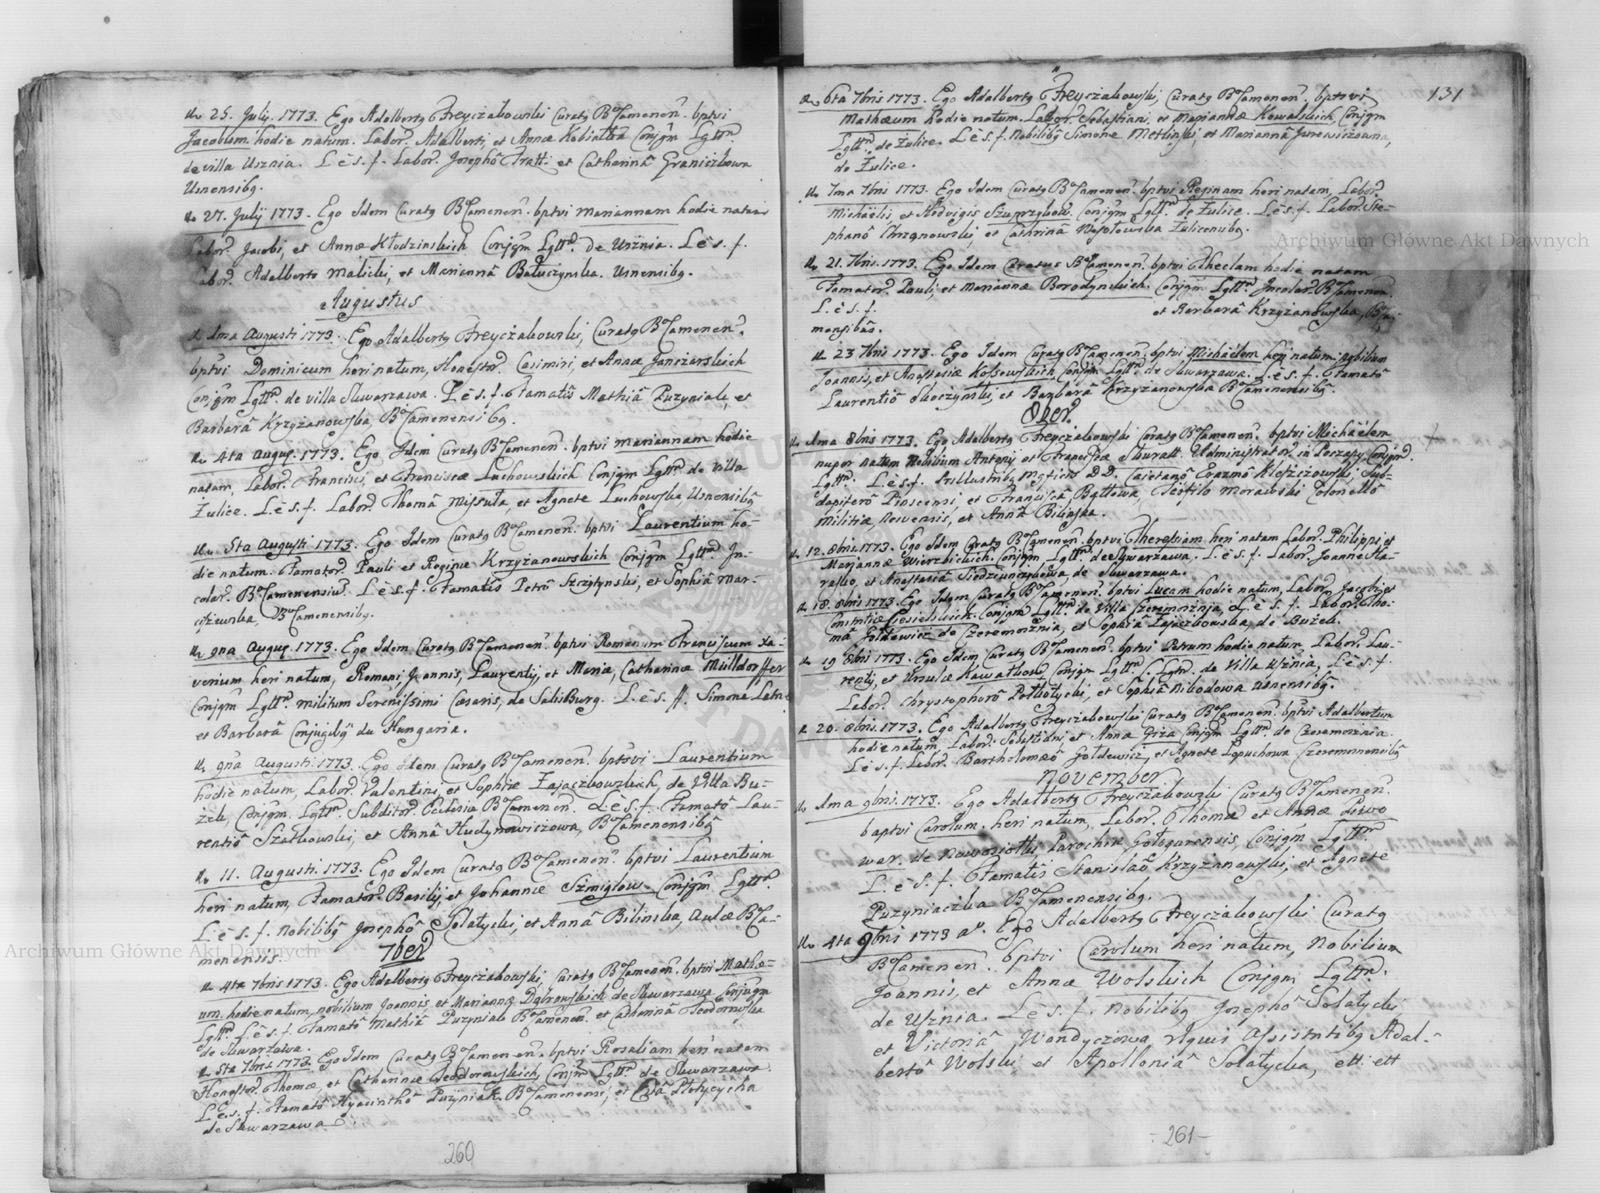 d. 25. Julij. 1773. Ego Adalberty Freyczakowski Curaty Bkamenen. bptvi
Jacobum hodie natum. Labor. Adalberti, et Annæ Conjgm Lgttm
de villa Usznia. L. è s. f. Labor. Josephô Fratt. et Catharinâ Graniczkowa
Usnensibq.
d. 27. Julij 1773. Ego Idem Curaty Bkamenen. bptvi Mariannam hodie natam
Labor. Jacobi, et Annæ Kłodzinskich Conjgm Lgttm. de Usznia. L. è s. f.
Labor. Adalbertô Malicki, et Mariannâ Bałuczynska. Usnensibq.
Augustus
d. 1ma Augusti 1773. Ego Adalberty Freyczakowski, Curaty Bkamenen.
bptvi Dominicum heri natum, Honestor. Casimiri, et Annæ
Conjgm Lgttm. de villa Skwarzawa. L. è s. f. Famatis Mathiâ Puzyniak, et
Barbarâ Krzyżanowska, Bkamenensibq.
d. 4ta Augus. 1773. Ego Idem Curaty Bkamenen. bptvi Mariannam hodie
natam, Labor. Francisci, et Franciscæ Luchowskich Conjgm Lgttm. de villa
Żulice. L. è s. f. Labor. Thomâ Misrula, et Agnete Luchowska, Usnensibq
d. 5ta Augusti 1773. Ego Idem Curaty Bkamenen. bptvi Laurentium ho-
die natum. Famator. Pauli et Reginæ Krzyżanowskich Conjgm Lgttm In-
colar. Bkamenensiu. L. è s. f. Famatis Petrô Strzytynski, et Sophiâ Mar-
ciszewska, Bkamenensibq.
d. 9na Augus. 1773. Ego Idem Curaty Bkamenen. bptvi Romanum Franciscum Xa-
verium heri natum, Romani Joannis, Laurentij, et Maria, Catharinæ Mülldorffer
Conjgm Lgttm. militum Serenissimi Cæsaris, de Salisburg. L. è s. ff. Simone
et Barbarâ Conjugibq du Hungaria.
d. 9na Augusti. 1773. Ego Idem Curaty Bkamenen. bptvi Laurentium
hodie natum, Labor. Valentini, et Sophiæ Zajączkowskich, de Villa Bu-
żek, Conjgm. Lgttm. Subditor. Eclesia Bkamenen. L. è s. f. Famatô Lau-
rentiô Szałkowski, et Annâ Hudynowiczowa, Bkamenensibq
d. 11. Augusti. 1773. Ego Idem Curaty Bkamenen. bptvi Laurentium
heri natum, Famator. Basilij, et Johannæ Szmigłow Conjgm Lgttm.
L. è s. f. Nobilibq Josephô Sołatycki, et Annâ Bilinska, Aulæ Bka-
menensis.
7ber
d. 4ta 7bris 1773. Ego Adalberty Freyczakowski, Curaty Bkamenen. bptvi Mathæ-
um hodie natum, nobilium Joannis, et Mariannæ Dąbrowskich de Skwarzawa Conjugm
Lgttm. L. è s. f. Famatô Mathiâ Puzyniak Bkamenen. et Catharinâ Teodorowska
de Skwarzawa.
d. 5ta 7bris 1773. Ego Idem Curaty Bkamenen. bptvi Rosaliam heri natam
Honestor. Thomæ, et Catharinæ Teodorowskich, Conjm Lgttm de Skwarzawa
L. è. s. f. Famatô Hyacinthô Puzyniak Bkamenensi, et Płotycycha
de Skwarzawa
260
131
d. 6ta 7bris 1773. Ego Adalberty Freyczakowski, Curaty Bkamenen. bptvi
Mathæum hodie natum. Labor. Sebastiani, et Mariannæ Kowalskich Conjgm
Lgttm. de Żulice. L. è s. f. Nobilibq Simone Metlinski, et Mariannâ Jurewiczowna,
de Żulice.
d. 7ma 7bris 1773. Ego Idem Curaty Bkamenen. bptvi Reginam heri natam, Labor.
Michaëlis, et Hedvigis Conjgm Lgttm. de Żulice. L. è s. f. Labor. Ste-
phanô Chrzanowski, et Cathrinâ Wesołowska Żulicensibq.
d. 21. 7bris. 1773. Ego Idem Curatus Bkamenen. bptvi Theclam hodie natam
Famator. Pauli, et Mariannæ Borodynskich Conjgm Lgttm. Incolar. Bkamenen.
L. è s. f. et Barbarâ Krzyżanowska
mensibus.
d. 23 7bris 1773. Ego Idem Curaty Bkamenen. bptvi Michaëlem heri natum, nobilium
Joannis, et Anastasiæ Kossowskich Conjgm Lgttm. de Skwarzawa. L. è s. f. Famatô
Laurentiô Skoczynski, et Barbarâ Krzyżanowska Bkamenensibq.
8ber
d. 1ma 8bris 1773. Ego Adalberty Freyczakowski Curaty Bkamenen. bptvi Michaëlem
nuper natum Nobilium Antonij et Franciscæ Administrator. in Conjgm.
Lgttm. L. è s. f. Illustribq Mgficis DD. Caietanô Erazmô Kleszczowski, Sub-
dapiferô Pinscensi, et Franciscâ Bątłowa Teofilo Morawski Colonellô
Militiæ, et Annâ Bilinska.
d. 12. 8bris. 1773. Ego Idem Curaty Bkamenen. bptvi Theresiam heri natam Labor. Philippi et
Mariannæ Wierzbickich, Conjgm Lgttm de Skwarzawa. L. è s. f. Labor. Joanne Ha-
rasko, et Anastasiâ de Skwarzawa.
d. 18. 8bris 1773. Ego Idem Curaty Bkamenen. bptvi Lucam hodie natum, Labor. Jacobi et
Conjgm Lgttm. de Villa Szeremosznia, L. è s. f. Labor. Tho-
mâ Gołdewicz de Czeremosznia, et Sophia Zajączkowska, de Bużek.
d. 19 8bris 1773. Ego Idem Curaty Bkamenen. bptvi Petrum hodie natum Labor. Lau-
rentij, et Ursulæ Kowalkow Conjgm Lgttm. de Villa Usznia, L. è s. f.
Labor. Chrystophorô Połtotycki, et Sophiâ Nikodowa Usnensibq.
d. 20. 8bris. 1773. Ego Adalberty Freyczakowski Curaty Bkamenen. bptvi Adalbertum
hodie natum, Labor. et Anna Conjgm Lgttm. de Czeremosznia
L. è s. f. Labor. Bartholomeô Gołdewicz, et Agnete Łopuchowa Czeremosnensibq
November.
d. 1ma 9bris. 1773. Ego Adalberty Freyczakowski Curaty Bkamenen.
baptvi Carolum heri natum, Labor. Thomæ et Annæ
de Nowosiołki, Parochiæ Gołogurensis, Conjgm Lgttm.
L. è s. f. Famatis Stanislaô Krzyżanowski, et Agnete
Puzyniaczka Bkamenensibq.
d. 4ta 9bris 1773 a°. Ego Adalberty Freyczakowski Curaty
Bkamenen. bptvi Carolum heri natum, Nobilium
Joannis, et Annæ Wolskich Conjgm Lgttm.
de Usznia. L. è s. f. Nobilibq Josephô Sołatycki
et Victoriâ Wandyczowa, Assistntibq Adal-
bertô Wolski et Apolloniâ Sołatycka, ett ett
- 261 -
Archiwum Główne Akt Dawnych
Archiwum Główne Akt Dawnych